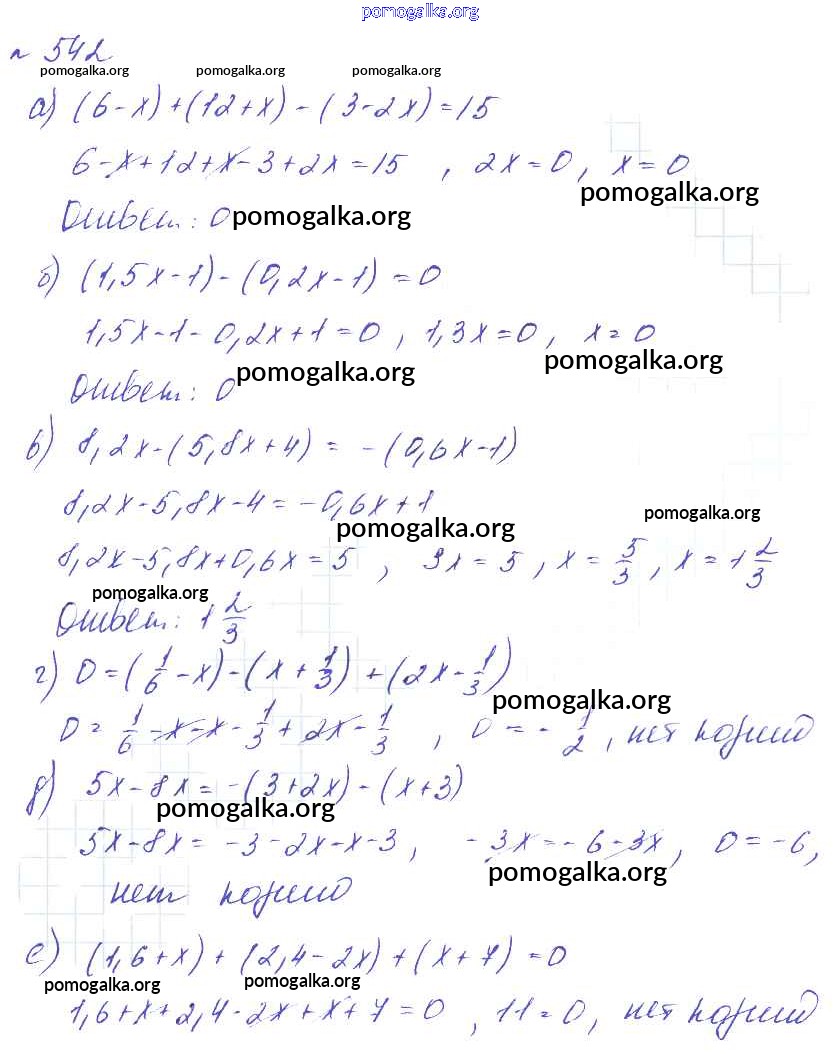 pomogalka.org
№ 542
pomogalka.org pomogalka.org pomogalka.org
а) (6-x)+(12+x)-(3-2x)=15
6-x+12+x-3+2x=15 , 2x=0, x=0
pomogalka.org
Ответ: 0 pomogalka.org
б) (1,5x-1)-(0,2x-1)=0
1,5x-1-0,2x+1=0 , 1,3x=0, x=0
pomogalka.org
Ответ: 0 pomogalka.org
в) 8,2x-(5,8x+4)= -(0,6x-1)
8,2x-5,8x-4=-0,6x+1
pomogalka.org pomogalka.org
8,2x-5,8x+0,6x=5 , 3x=5 , x=5/3 , x=1 2/3
pomogalka.org
Ответ: 1 2/3
г) 0=(1/6-x)-(x+1/3)+(2x-1/3)
pomogalka.org
0=1/6-x-x-1/3+2x-1/3 , 0=-1/2 , нет корней
д) 5x-8x=-(3+2x)-(x+3)
pomogalka.org
5x-8x= -3-2x-x-3, -3x=-6-3x, 0=-6,
pomogalka.org
нет корней
е) (1,6+x)+(2,4-2x)+(x+7)=0
pomogalka.org pomogalka.org
1,6+x+2,4-2x+x+7=0 , 11=0, нет корней